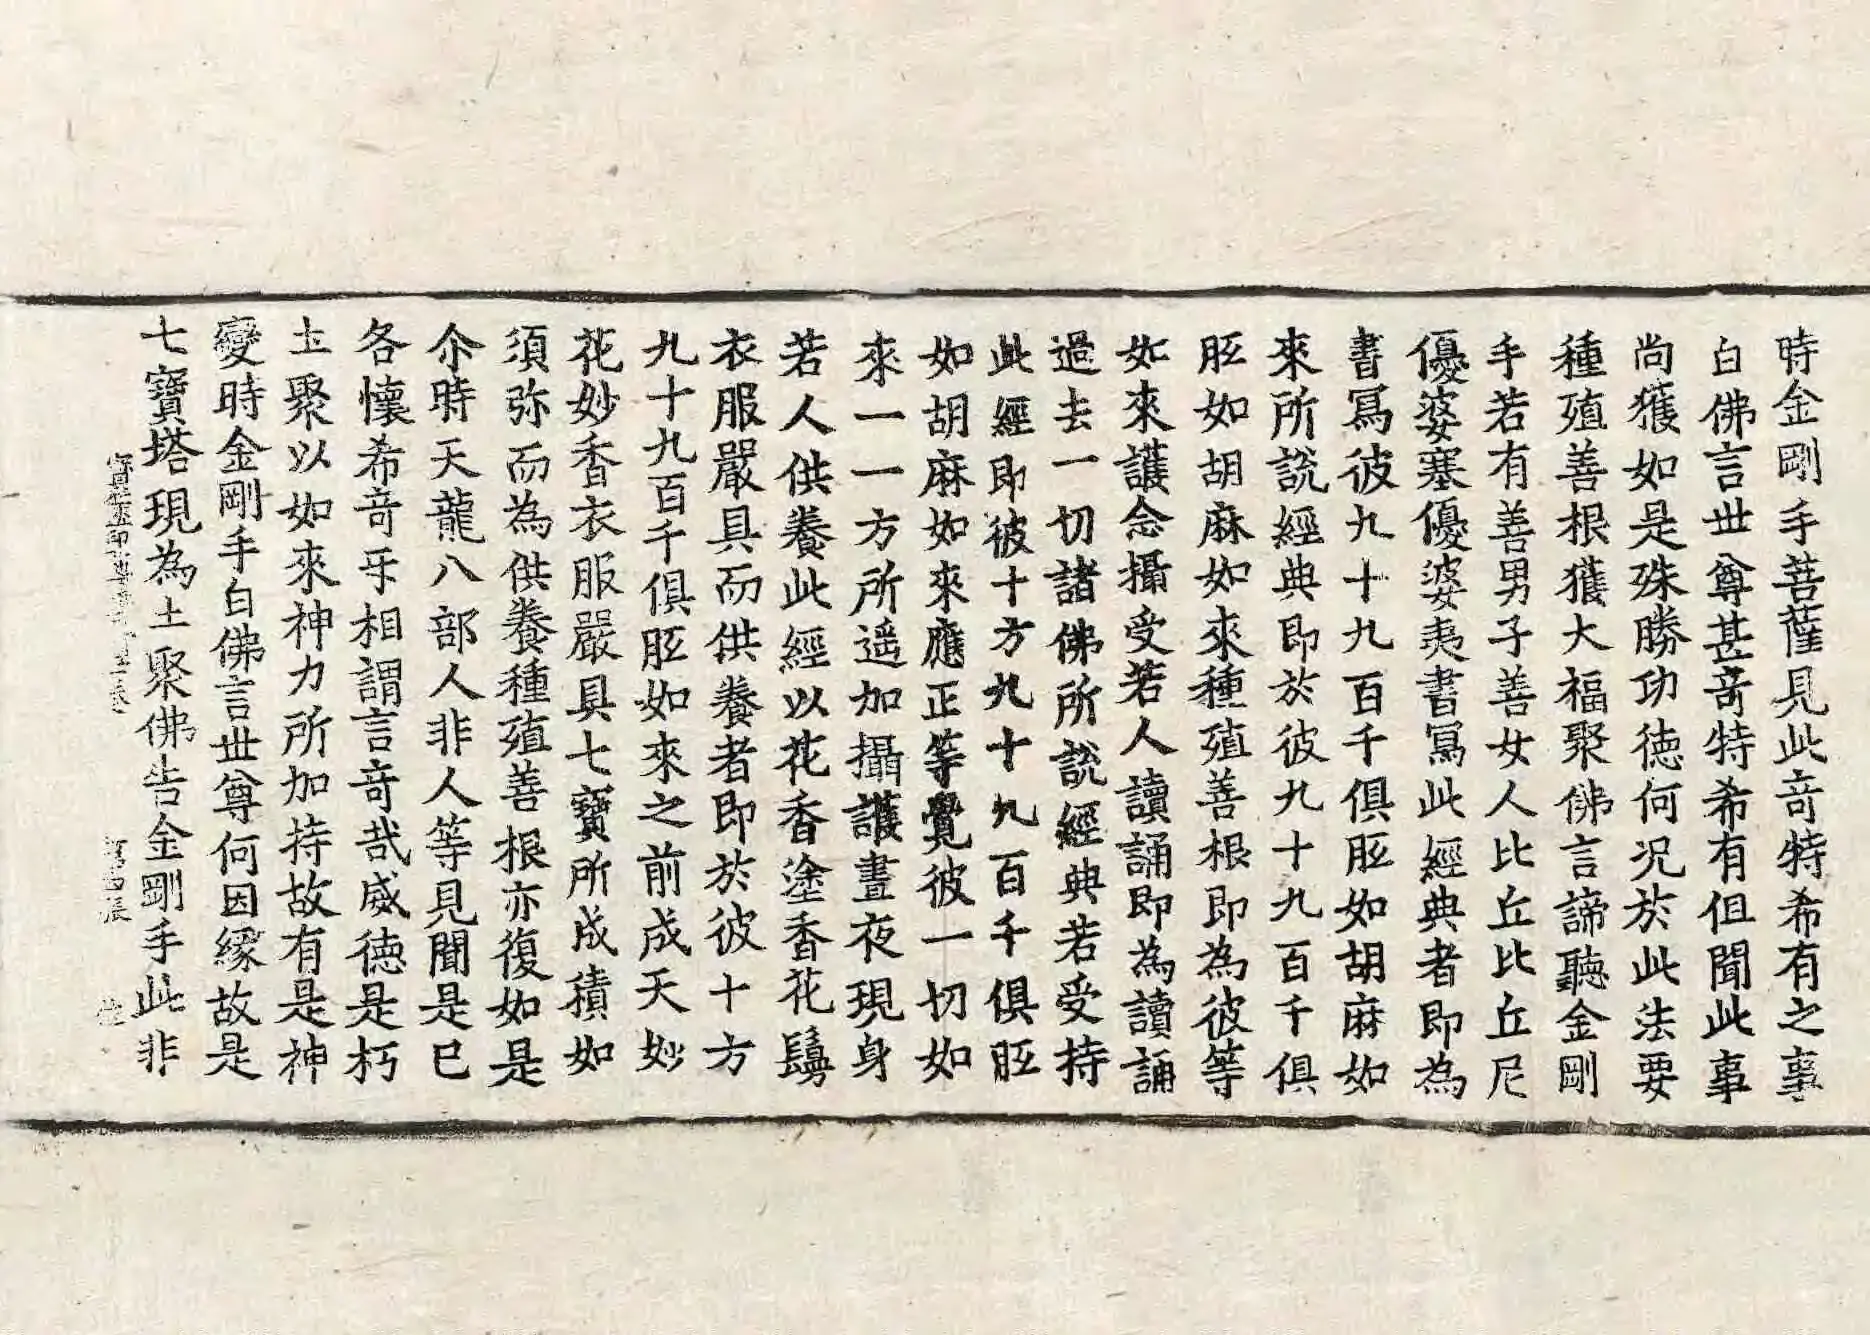 時金剛手菩薩見此竒特希有之事
白佛言世尊甚竒特希有但聞此事
尚獲如是殊勝功德何况於此法要
種殖善根獲大福聚佛言諦聽金剛
手若有善男子善女人比丘比丘尼
優婆塞優婆夷書寫此經典者即為
書寫彼九十九百千俱胝如胡麻如
來所說經典即於彼九十九百千俱
胝如胡麻如來種殖善根即為彼等
如來護念攝受若人讀誦即為讀誦
過去一切諸佛所說經典若受持
此經即彼十方九十九百千俱胝
如胡麻如來應正等覺彼一切如
來一一方所遥加攝護晝夜現身
若人供養此經以花香塗香花鬘
衣服嚴具而供養者即於彼十方
九十九百千俱胝如來之前成天妙
花妙香衣服嚴具七寶所成積如
須弥而為供養種殖善根亦復如是
尒時天龍八部人非人等見聞是已
各懷希竒㸦相謂言竒哉威德是朽
土聚以如來神力所加持故有是神
變時金剛手白佛言世尊何因緣故是
七寶塔現為土聚佛告金剛手此非